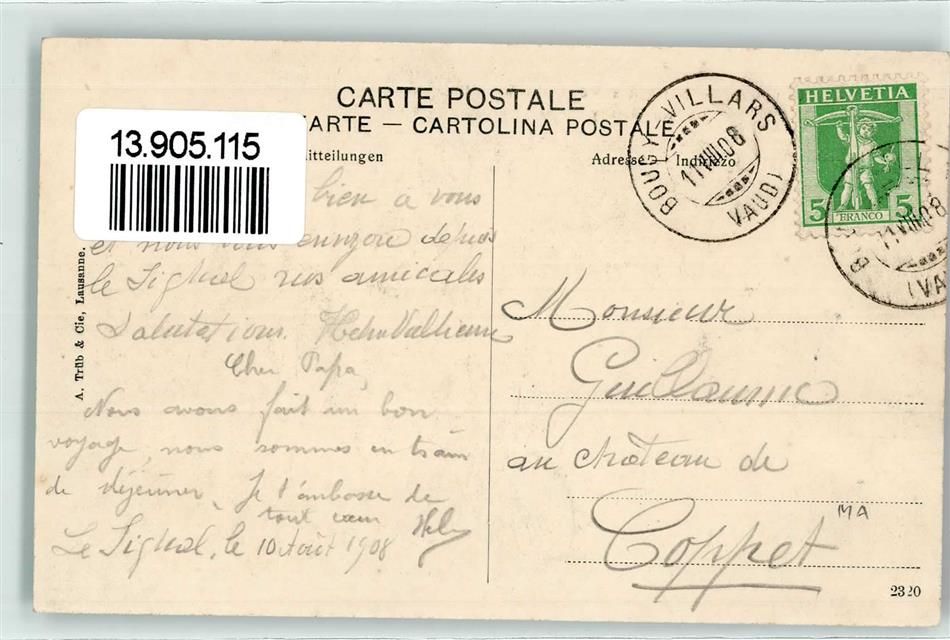 CARTE POSTALE
ARTE — CARTOLINA POSTALE
itteilungen
Adresse — Indirizzo
13.905.115
BOUGY-VILLARS
11 VIII 08
(VAUD)
HELVETIA
5 FRANCO 5
11 VIII 08
(VA
A. Trüb & Cie, Lausanne.
bien à vous
et nous vous envoyons depuis
le Signal nos amicales
Salutations.
Cher Papa,
Nous avons fait un bon
voyage, nous sommes en train
de déjeuner. Je t'embrasse de
tout cœur
Le Signal, le 10 Août 1908
Monsieur
Guillaume
au château de
Coppet
MA
2320